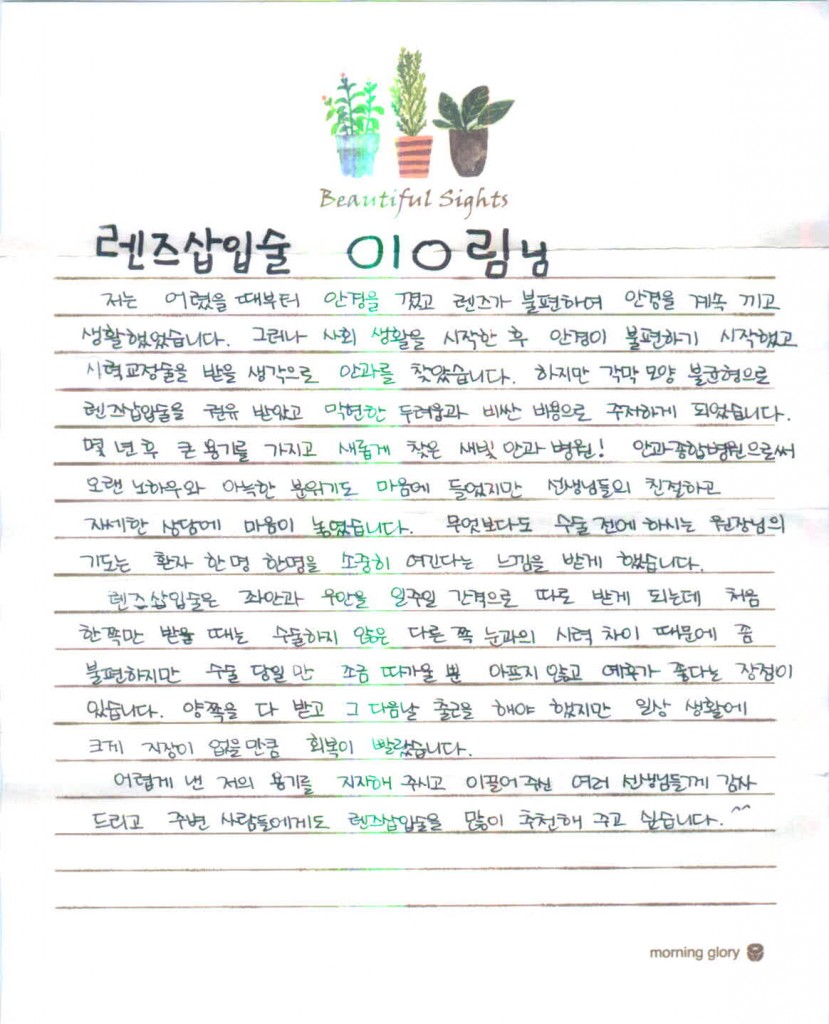 Beautiful Sights
렌즈삽입술 이O림님
저는 어렸을 때부터 안경을 꼈고 렌즈가 불편하여 안경을 계속 끼고
생활했었습니다. 그러나 사회 생활을 시작한 후 안경이 불편하기 시작했고
시력교정술을 받을 생각으로 안과를 찾았습니다. 하지만 각막 모양 불균형으로
렌즈삽입술을 권유 받았고 막연한 두려움과 비싼 비용으로 주저하게 되었습니다.
몇 년 후 큰 용기를 가지고 새롭게 찾은 새빛 안과 병원! 안과종합병원으로써
오랜 노하우와 아늑한 분위기도 마음에 들었지만 선생님들의 친절하고
자세한 상담에 마음이 놓였습니다. 무엇보다도 수술 전에 하시는 원장님의
기도는 환자 한명 한명을 소중히 여긴다는 느낌을 받게 했습니다.
렌즈삽입술은 좌안과 우안을 일주일 간격으로 따로 받게 되는데 처음
한쪽만 받을 때는 수술하지 않은 다른 쪽 눈과의 시력 차이 때문에 좀
불편하지만 수술 당일만 조금 따가울 뿐 아프지 않고 예후가 좋다는 장점이
있습니다. 양쪽을 다 받고 그 다음날 출근을 해야 했지만 일상 생활에
크게 지장이 없을만큼 회복이 빨랐습니다.
어렵게 낸 저의 용기를 지지해 주시고 이끌어주신 여러 선생님들께 감사
드리고 주변 사람들에게도 렌즈삽입술을 많이 추천해 주고 싶습니다. ^^
morning glory